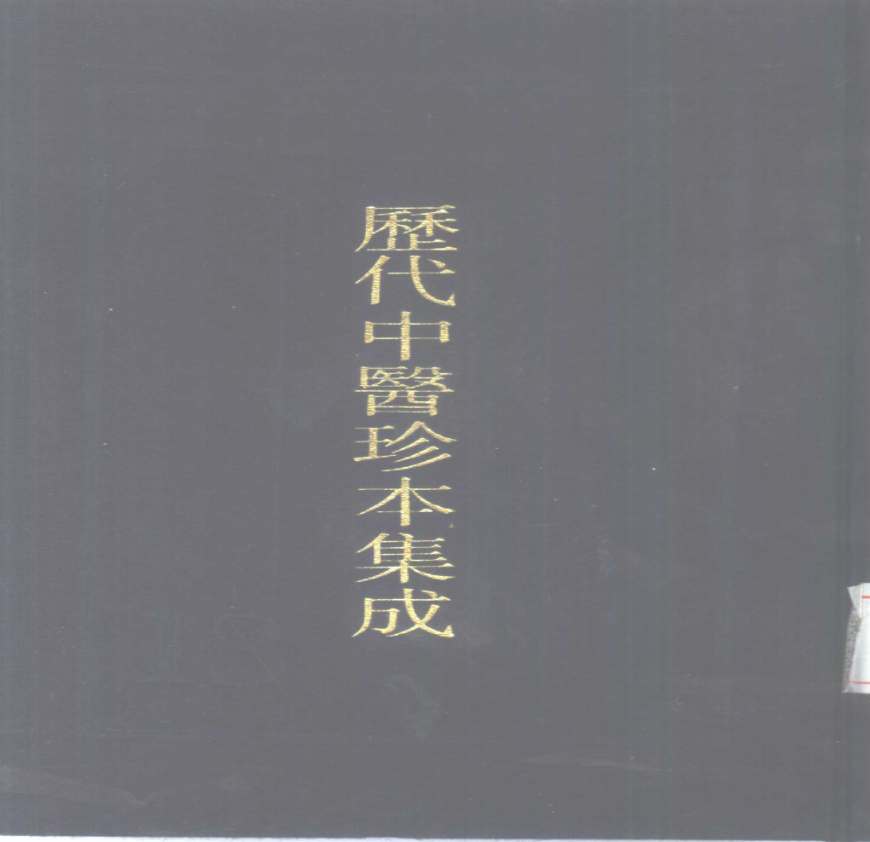 歷代中醫珍本集成